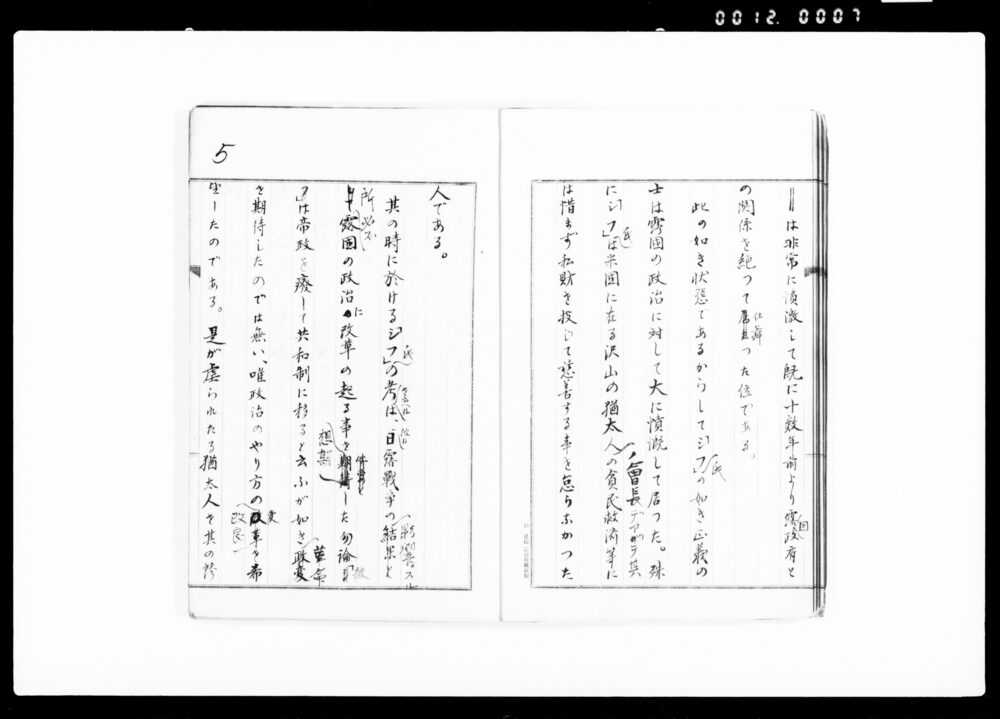 0012. 0007
は非常に憤激して既に十数年前より露国政府と
の関係を絶つて仕舞つた位である。
此の如き状態であるからしてシフ氏の如き正義の
士は露国の政治に対して大に憤慨して居つた。殊
にシフ氏は米国に在る沢山の猶太人の會長デアツテ其貧民救済等に
は惜まず私財を投じて慈善する事を怠らなかつた
5
人である。
其の時に於けるシフ氏の考は、日露戦争の結果と
影響スル
所必ズ
露国の政治に改革の起る事を
想期
した勿論
は帝政を廃して共和制に移ると云ふが如き政変
革命
を期待したのでは無い、唯政治のやり方の変革を希
改良
望したのである。是が虐られたる猶太人を其の惨